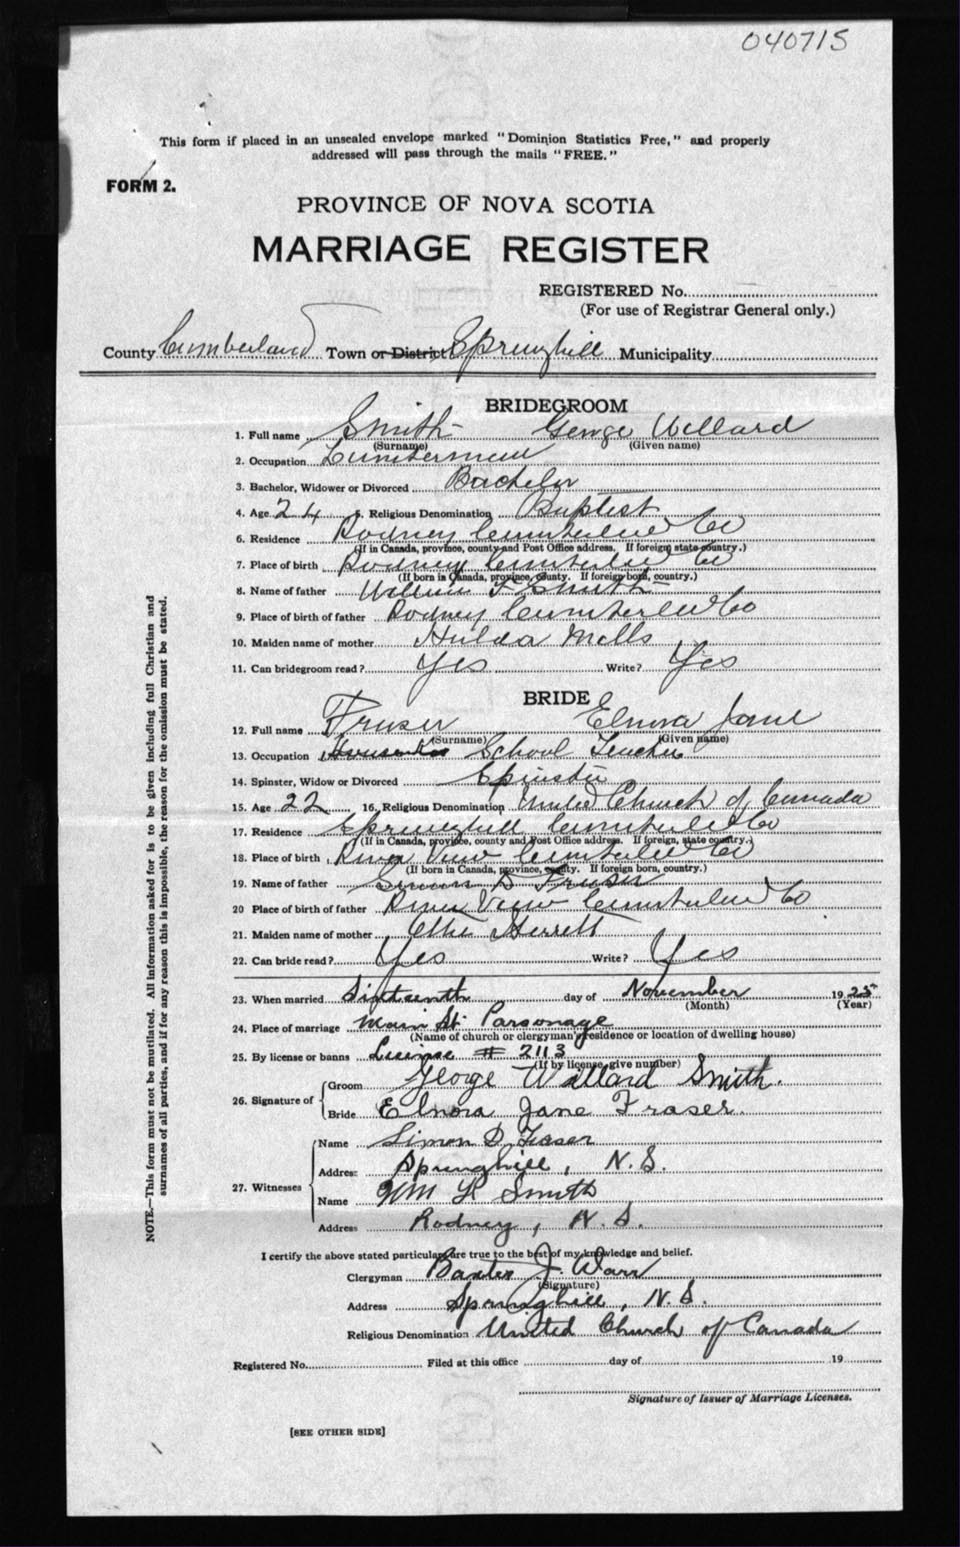 040715
This form if placed in an unsealed envelope marked "Dominion Statistics Free," and properly
addressed will pass through the mails "FREE."
FORM 2.
PROVINCE OF NOVA SCOTIA
MARRIAGE REGISTER
REGISTERED No.
(For use of Registrar General only.)
County Cumberland Town or District Springhill Municipality
BRIDEGROOM
1. Full name Smith George Willard
(Surname) (Given name)
2. Occupation Lumberman
3. Bachelor, Widower or Divorced Bachelor
4. Age 24 5. Religious Denomination Baptist
6. Residence Rodney Cumberland Co
(If in Canada, province, county and Post Office address. If foreign, state country.)
7. Place of birth Rodney Cumberland Co
(If born in Canada, province, county. If foreign born, country.)
8. Name of father William F Smith
9. Place of birth of father Rodney Cumberland Co
10. Maiden name of mother Hulda Mills
11. Can bridegroom read? Yes Write? Yes
BRIDE
12. Full name Fraser Elnora Jane
(Surname) (Given name)
13. Occupation School Teacher
14. Spinster, Widow or Divorced Spinster
15. Age 22 16. Religious Denomination United Church of Canada
17. Residence Springhill Cumberland Co
(If in Canada, province, county and Post Office address. If foreign, state country.)
18. Place of birth River View Cumberland Co
(If born in Canada, province, county. If foreign born, country.)
19. Name of father Simon D Fraser
20 Place of birth of father River View Cumberland Co
21. Maiden name of mother Ettie Herrett
22. Can bride read? Yes Write? Yes
23. When married Sixteenth day of November 1925
(Month) (Year)
24. Place of marriage Main St. Parsonage
(Name of church or clergyman's residence or location of dwelling house)
25. By license or banns License # 2113
(If by license, give number)
26. Signature of Groom George Willard Smith.
Bride Elnora Jane Fraser.
27. Witnesses Name Simon D. Fraser
Address Springhill, N.S.
Name Wm F. Smith
Address Rodney, N.S.
I certify the above stated particulars are true to the best of my knowledge and belief.
Clergyman Baxter J. Warr
(Signature)
Address Springhill, N.S.
Religious Denomination United Church of Canada
Registered No. Filed at this office day of 19
Signature of Issuer of Marriage Licenses.
[SEE OTHER SIDE]
NOTE.—This form must not be mutilated. All information asked for is to be given including full Christian and
surnames of all parties, and if for any reason this is impossible, the reason for the omission must be stated.